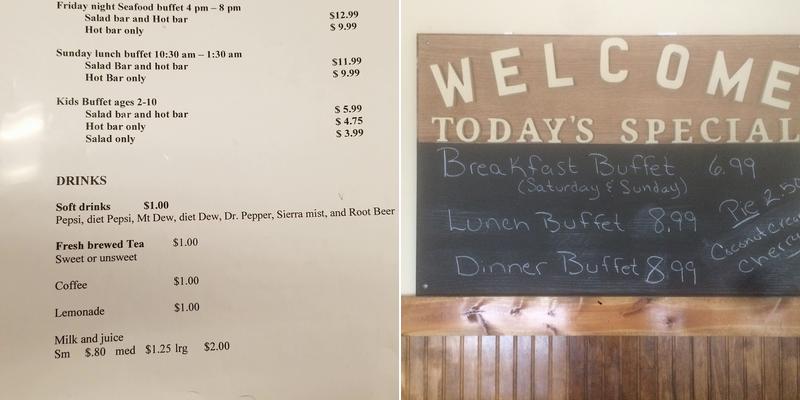 Friday night Seafood buffet 4 pm – 8 pm
Salad bar and Hot bar $12.99
Hot bar only $ 9.99
Sunday lunch buffet 10:30 am – 1:30 am
Salad Bar and hot bar $11.99
Hot Bar only $ 9.99
Kids Buffet ages 2-10
Salad bar and hot bar $ 5.99
Hot bar only $ 4.75
Salad only $ 3.99
DRINKS
Soft drinks $1.00
Pepsi, diet Pepsi, Mt Dew, diet Dew, Dr. Pepper, Sierra mist, and Root Beer
Fresh brewed Tea $1.00
Sweet or unsweet
Coffee $1.00
Lemonade $1.00
Milk and juice
Sm $.80 med $1.25 lrg $2.00
WELCOME
TODAY'S SPECIAL
Breakfast Buffet 6.99
(Saturday & Sunday)
Lunch Buffet 8.99
Dinner Buffet 8.99
Pie 2.50
Coconut crea
cherry